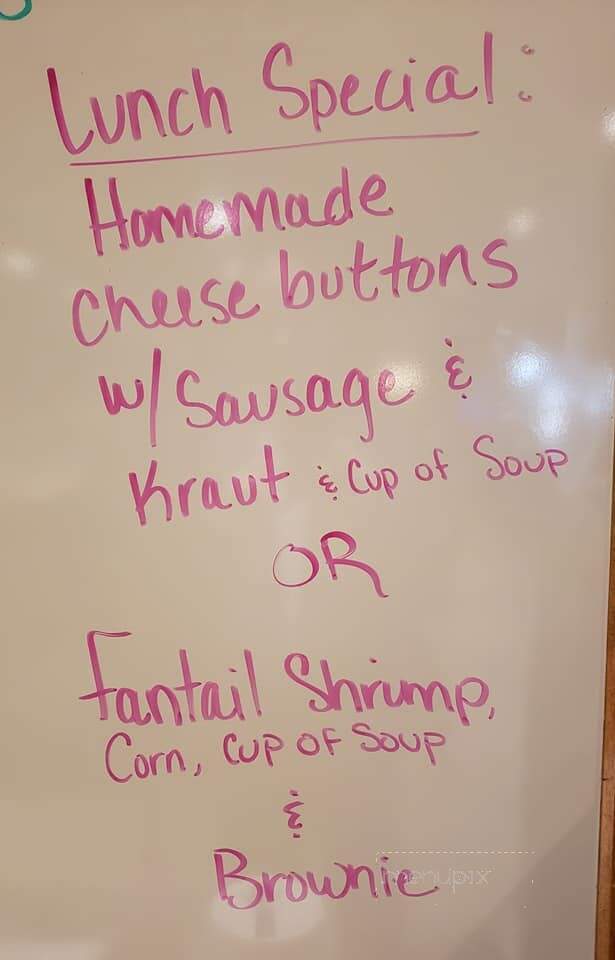 Lunch Special:
Homemade
Cheese buttons
w/ Sausage &
Kraut & Cup of Soup
OR
Fantail Shrimp,
Corn, Cup of Soup
&
Brownie
menupix